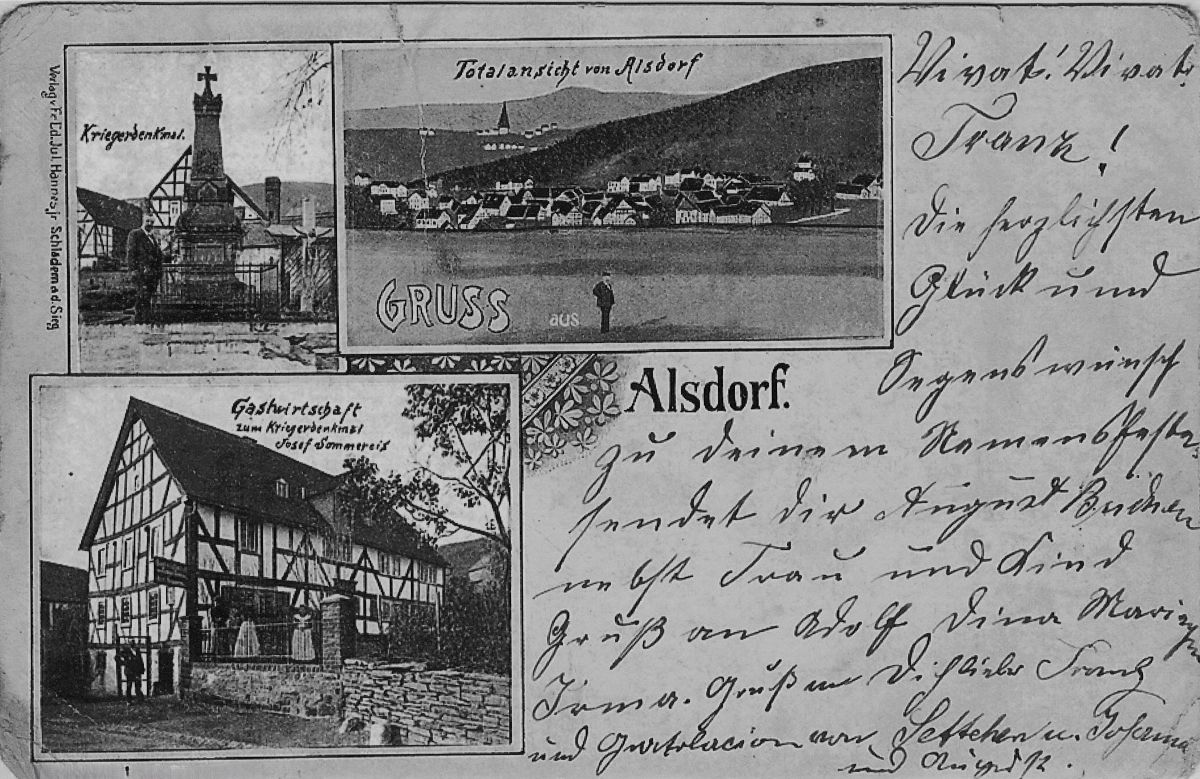 Verlag v. Fr. Ed. Jul. Hannes jr. Schladern a.d. Sieg
Kriegerdenkmal.
Totalansicht von Alsdorf
GRUSS aus
Alsdorf.
Gastwirtschaft
zum Kriegerdenkmal
Josef Sommereis
Vivat! Vivat.
Franz!
die herzlichsten
Glück und
Segenswünsch
zu deinem Namensfeste
sendet dir August
nebst Frau und Kind
Gruß an Adolf Dina
Irma. Gruß an Dich lieber Franz
und Gratolacion von Settchen u.
und August.